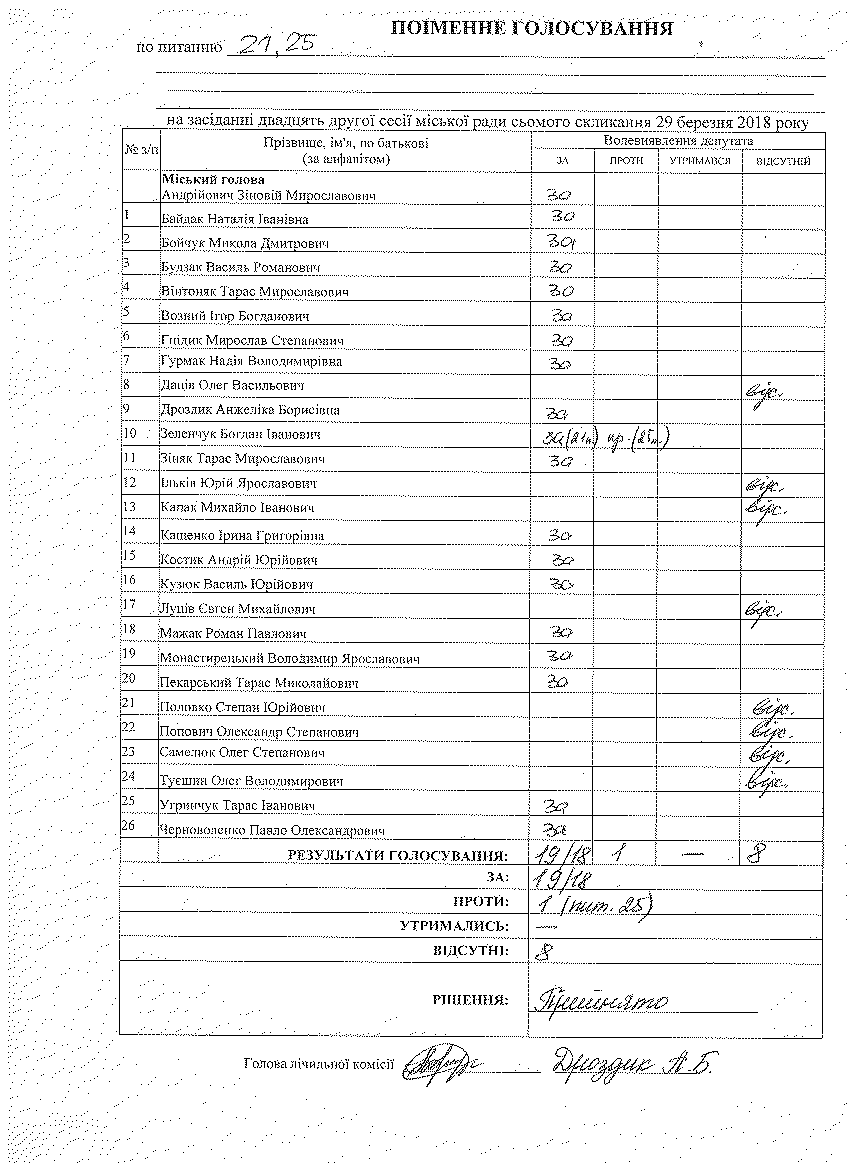 ПОІМЕННЕ ГОЛОСУВАННЯ
по питанню 21, 25
на засіданні двадцять другої сесії міської ради сьомого скликання 29 березня 2018 року
№ з/п Прізвище, ім'я, по батькові (за алфавітом) Волевиявлення депутата
ЗА ПРОТИ УТРИМАВСЯ ВІДСУТНІЙ
Міський голова
Андрійович Зіновій Мирославович за
1 Байдак Наталія Іванівна за
2 Бойчук Микола Дмитрович за
3 Будзак Василь Романович за
4 Вінтоняк Тарас Мирославович за
5 Возний Ігор Богданович за
6 Гнідик Мирослав Степанович за
7 Гурмак Надія Володимирівна за
8 Дація Олег Васильович відс.
9 Дроздик Анжеліка Борисівна за
10 Зеленчук Богдан Іванович за (21п.) пр. (25п.)
11 Зіняк Тарас Мирославович за
12 Ільків Юрій Ярославович відс.
13 Капак Михайло Іванович відс.
14 Кащенко Ірина Григорівна за
15 Костик Андрій Юрійович за
16 Кузюк Василь Юрійович за
17 Луців Євген Михайлович відс.
18 Мажак Роман Павлович за
19 Монастирецький Володимир Ярославович за
20 Пекарський Тарас Миколайович за
21 Половко Степан Юрійович відс.
22 Попович Олександр Степанович відс.
23 Самелюк Олег Степанович відс.
24 Туєшин Олег Володимирович відс.
25 Угринчук Тарас Іванович за
26 Черноволенко Павло Олександрович за
РЕЗУЛЬТАТИ ГОЛОСУВАННЯ: 19/18 1 — 8
ЗА: 19/18
ПРОТИ: 1 (пит. 25)
УТРИМАЛИСЬ: —
ВІДСУТНІ: 8
РІШЕННЯ: Прийнято
Голова лічильної комісії Дроздик А.Б.